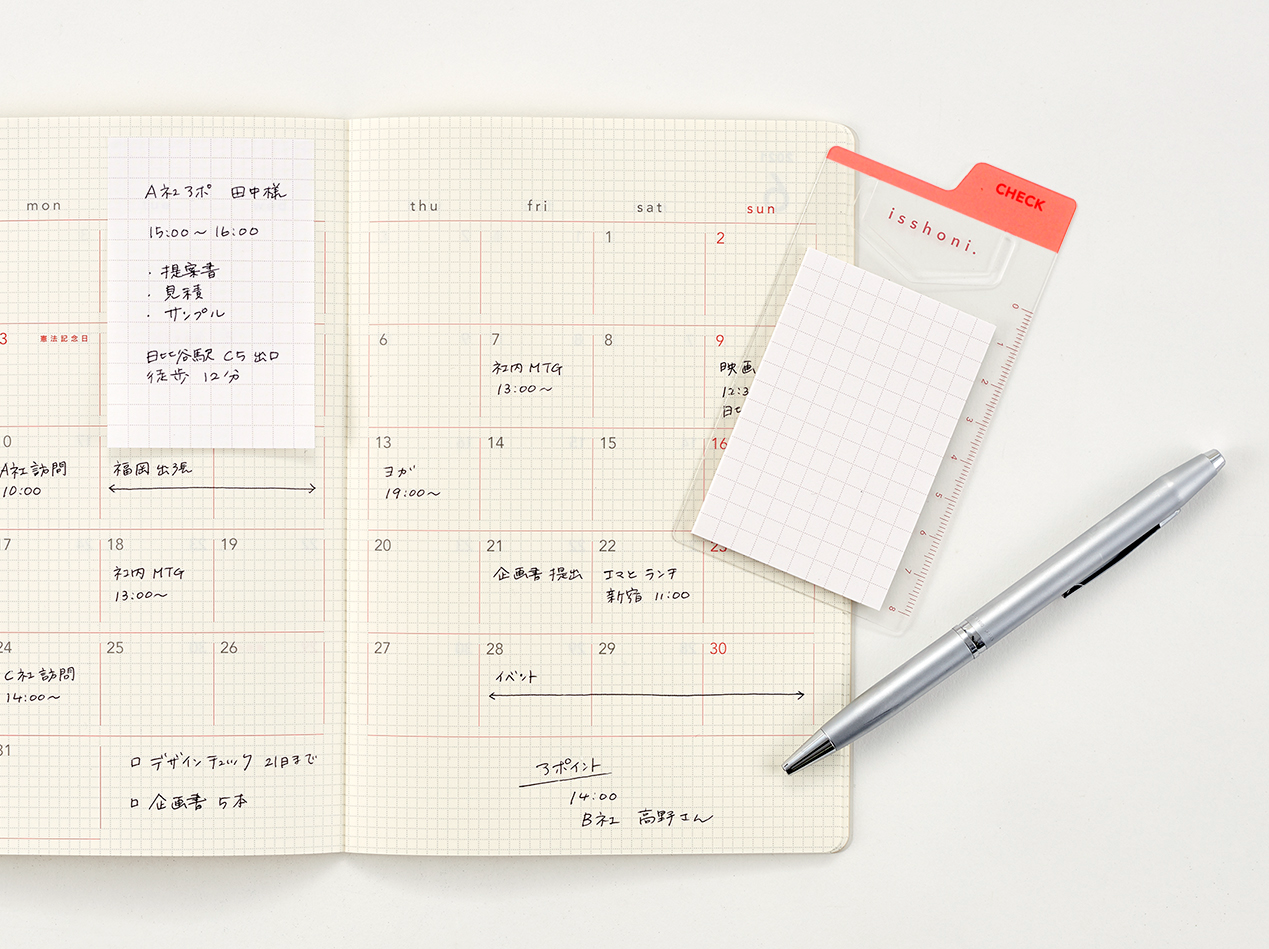 mon
thu
fri
sat
sun
A社アポ 田中様
15:00〜16:00
・提案書
・見積
・サンプル
日比谷駅 C5出口
徒歩 12分
1
2
3 憲法記念日
6
7
8
9
社内MTG
13:00〜
映画
12:3
日比
10
13
14
15
16
A社訪問
10:00
福岡出張
ヨガ
19:00〜
17
18
19
20
21
22
23
社内MTG
13:00〜
企画書提出
エマとランチ
新宿 11:00
24
25
26
27
28
29
30
C社訪問
14:00〜
イベント
31
□ デザインチェック 21日まで
□ 企画書 5本
アポイント
14:00
B社 高野さん
CHECK
isshoni.
0
1
2
3
4
5
6
7
8